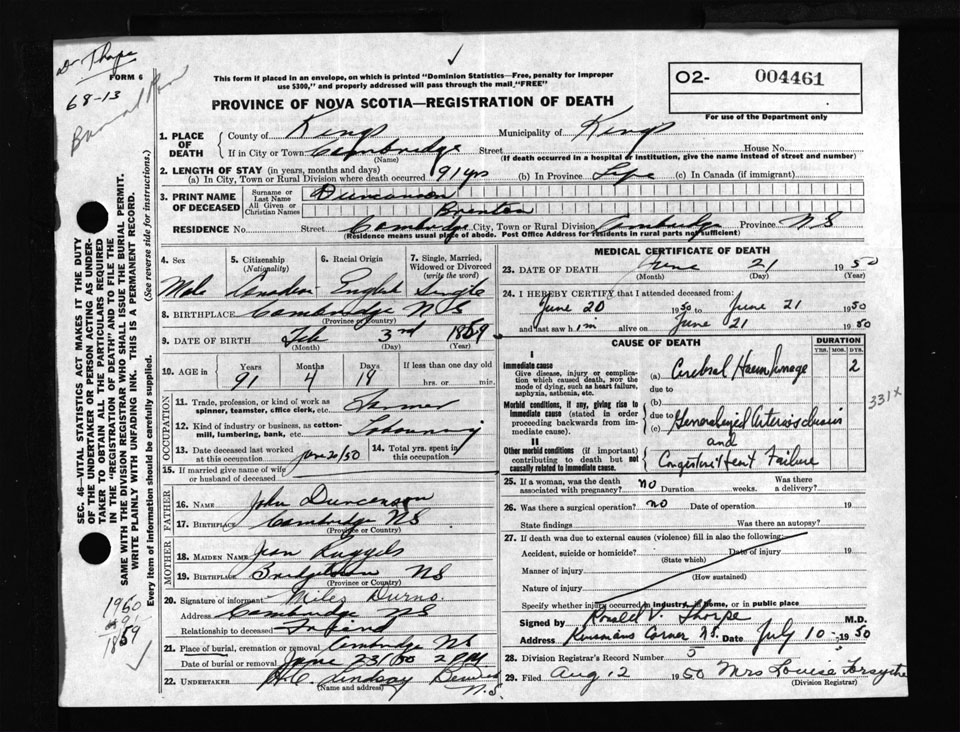 Dr Thorpe
FORM 6
68-13
This form if placed in an envelope, on which is printed "Dominion Statistics—Free, penalty for improper
use $300," and properly addressed will pass through the mail "FREE"
PROVINCE OF NOVA SCOTIA—REGISTRATION OF DEATH
O2- 004461
For use of the Department only
SEC. 46—VITAL STATISTICS ACT MAKES IT THE DUTY
OF THE UNDERTAKER OR PERSON ACTING AS UNDER-
TAKER TO OBTAIN ALL THE PARTICULARS REQUIRED
IN THE "REGISTRATION OF DEATH" AND TO FILE THE
SAME WITH THE DIVISION REGISTRAR WHO SHALL ISSUE THE BURIAL PERMIT.
WRITE PLAINLY WITH UNFADING INK. THIS IS A PERMANENT RECORD.
Every item of information should be carefully supplied. (See reverse side for instructions.)
1. PLACE OF DEATH County of Kings Municipality of Kings
If in City or Town Cambridge Street House No.
(Name) (If death occurred in a hospital or institution, give the name instead of street and number)
2. LENGTH OF STAY (in years, months and days)
(a) In City, Town or Rural Division where death occurred 91 yrs (b) In Province Life (c) In Canada (if immigrant)
3. PRINT NAME OF DECEASED Surname or Last Name Duncanson
All Given or Christian Names Brenton
RESIDENCE No. Street Cambridge City, Town or Rural Division Cambridge Province N S
(Residence means usual place of abode. Post Office Address for residents in rural parts not sufficient)
4. Sex 5. Citizenship (Nationality) 6. Racial Origin 7. Single, Married, Widowed or Divorced (write the word)
Male Canadian English Single
8. BIRTHPLACE Cambridge N S
(Province or Country)
9. DATE OF BIRTH Feb 3rd 1859
(Month) (Day) (Year)
10. AGE in Years Months Days If less than one day old
91 4 18 hrs. or min.
OCCUPATION
11. Trade, profession, or kind of work as
spinner, teamster, office clerk, etc.
12. Kind of industry or business, as cotton-
mill, lumbering, bank, etc.
13. Date deceased last worked at this occupation June 20/50 14. Total yrs. spent in this occupation
15. If married give name of wife or husband of deceased
FATHER
16. NAME John Duncanson
17. BIRTHPLACE Cambridge NS
(Province or Country)
MOTHER
18. MAIDEN NAME Jean Ruggels
19. BIRTHPLACE Bridgetown NS
(Province or Country)
20. Signature of informant Miles Durno
Address Cambridge NS
Relationship to deceased Friend
21. Place of burial, cremation or removal Cambridge NS
Date of burial or removal June 23/50 2 PM
22. UNDERTAKER H.C. Lindsay N.S.
(Name and address)
1960
1859
MEDICAL CERTIFICATE OF DEATH
23. DATE OF DEATH June 21 1950
(Month) (Day) (Year)
24. I HEREBY CERTIFY that I attended deceased from:
June 20 1950 to June 21 1950
and last saw him alive on June 21 1950
CAUSE OF DEATH DURATION
YRS. MOS. DYS.
I
Immediate cause
Give disease, injury or compli-
cation which caused death, NOT the
mode of dying, such as heart failure,
asphyxia, asthenia, etc.
(a) Cerebral Haemorrhage 2
due to
Morbid conditions, if any, giving rise to
immediate cause (stated in order
proceeding backwards from im-
mediate cause).
(b)
due to
(c) Generalized Arteriosclerosis
and
331x
II
Other morbid conditions (if important)
contributing to death but not
causally related to immediate cause.
Congestive Heart Failure
25. If a woman, was the death associated with pregnancy? no Duration weeks. Was there a delivery?
26. Was there a surgical operation? no Date of operation 19
State findings Was there an autopsy?
27. If death was due to external causes (violence) fill in also the following:
Accident, suicide or homicide? Date of injury 19
(State which)
Manner of injury
(How sustained)
Nature of injury
Specify whether injury occurred in industry, home, or in public place
Signed by Ronald V. Thorpe M.D.
Address Kinsmans Corner N.S. Date July 10 1950
28. Division Registrar's Record Number 5
29. Filed Aug 12 1950 Mrs Louise Forsythe
(Division Registrar)